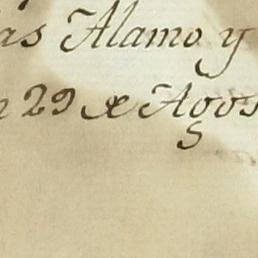 as Alamo y
29 de Agos